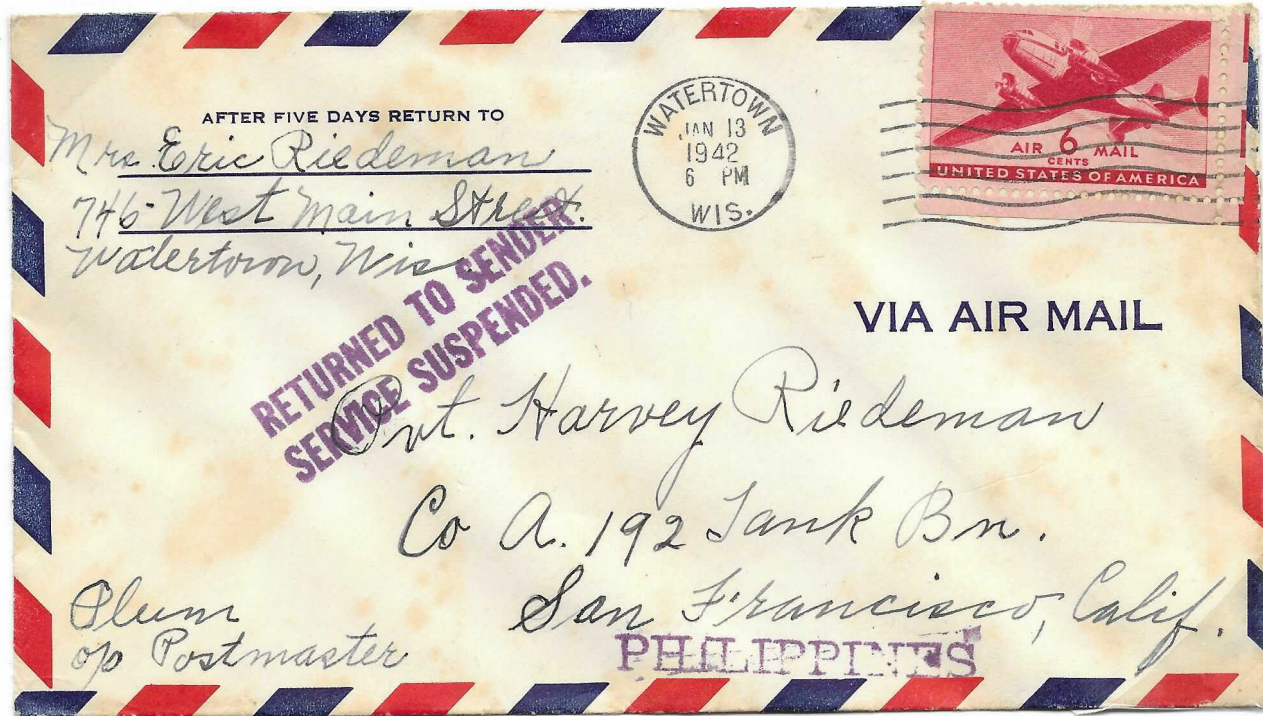 AFTER FIVE DAYS RETURN TO
Mrs. Eric Riedeman
746 West Main Street.
Watertown, Wis.
WATERTOWN
JAN 13
1942
6 PM
WIS.
AIR 6 MAIL
CENTS
UNITED STATES OF AMERICA
RETURNED TO SENDER
SERVICE SUSPENDED.
VIA AIR MAIL
Pvt. Harvey Riedeman
Co A. 192 Tank Bn.
San Francisco, Calif.
Plum
c/o Postmaster
PHILIPPINES